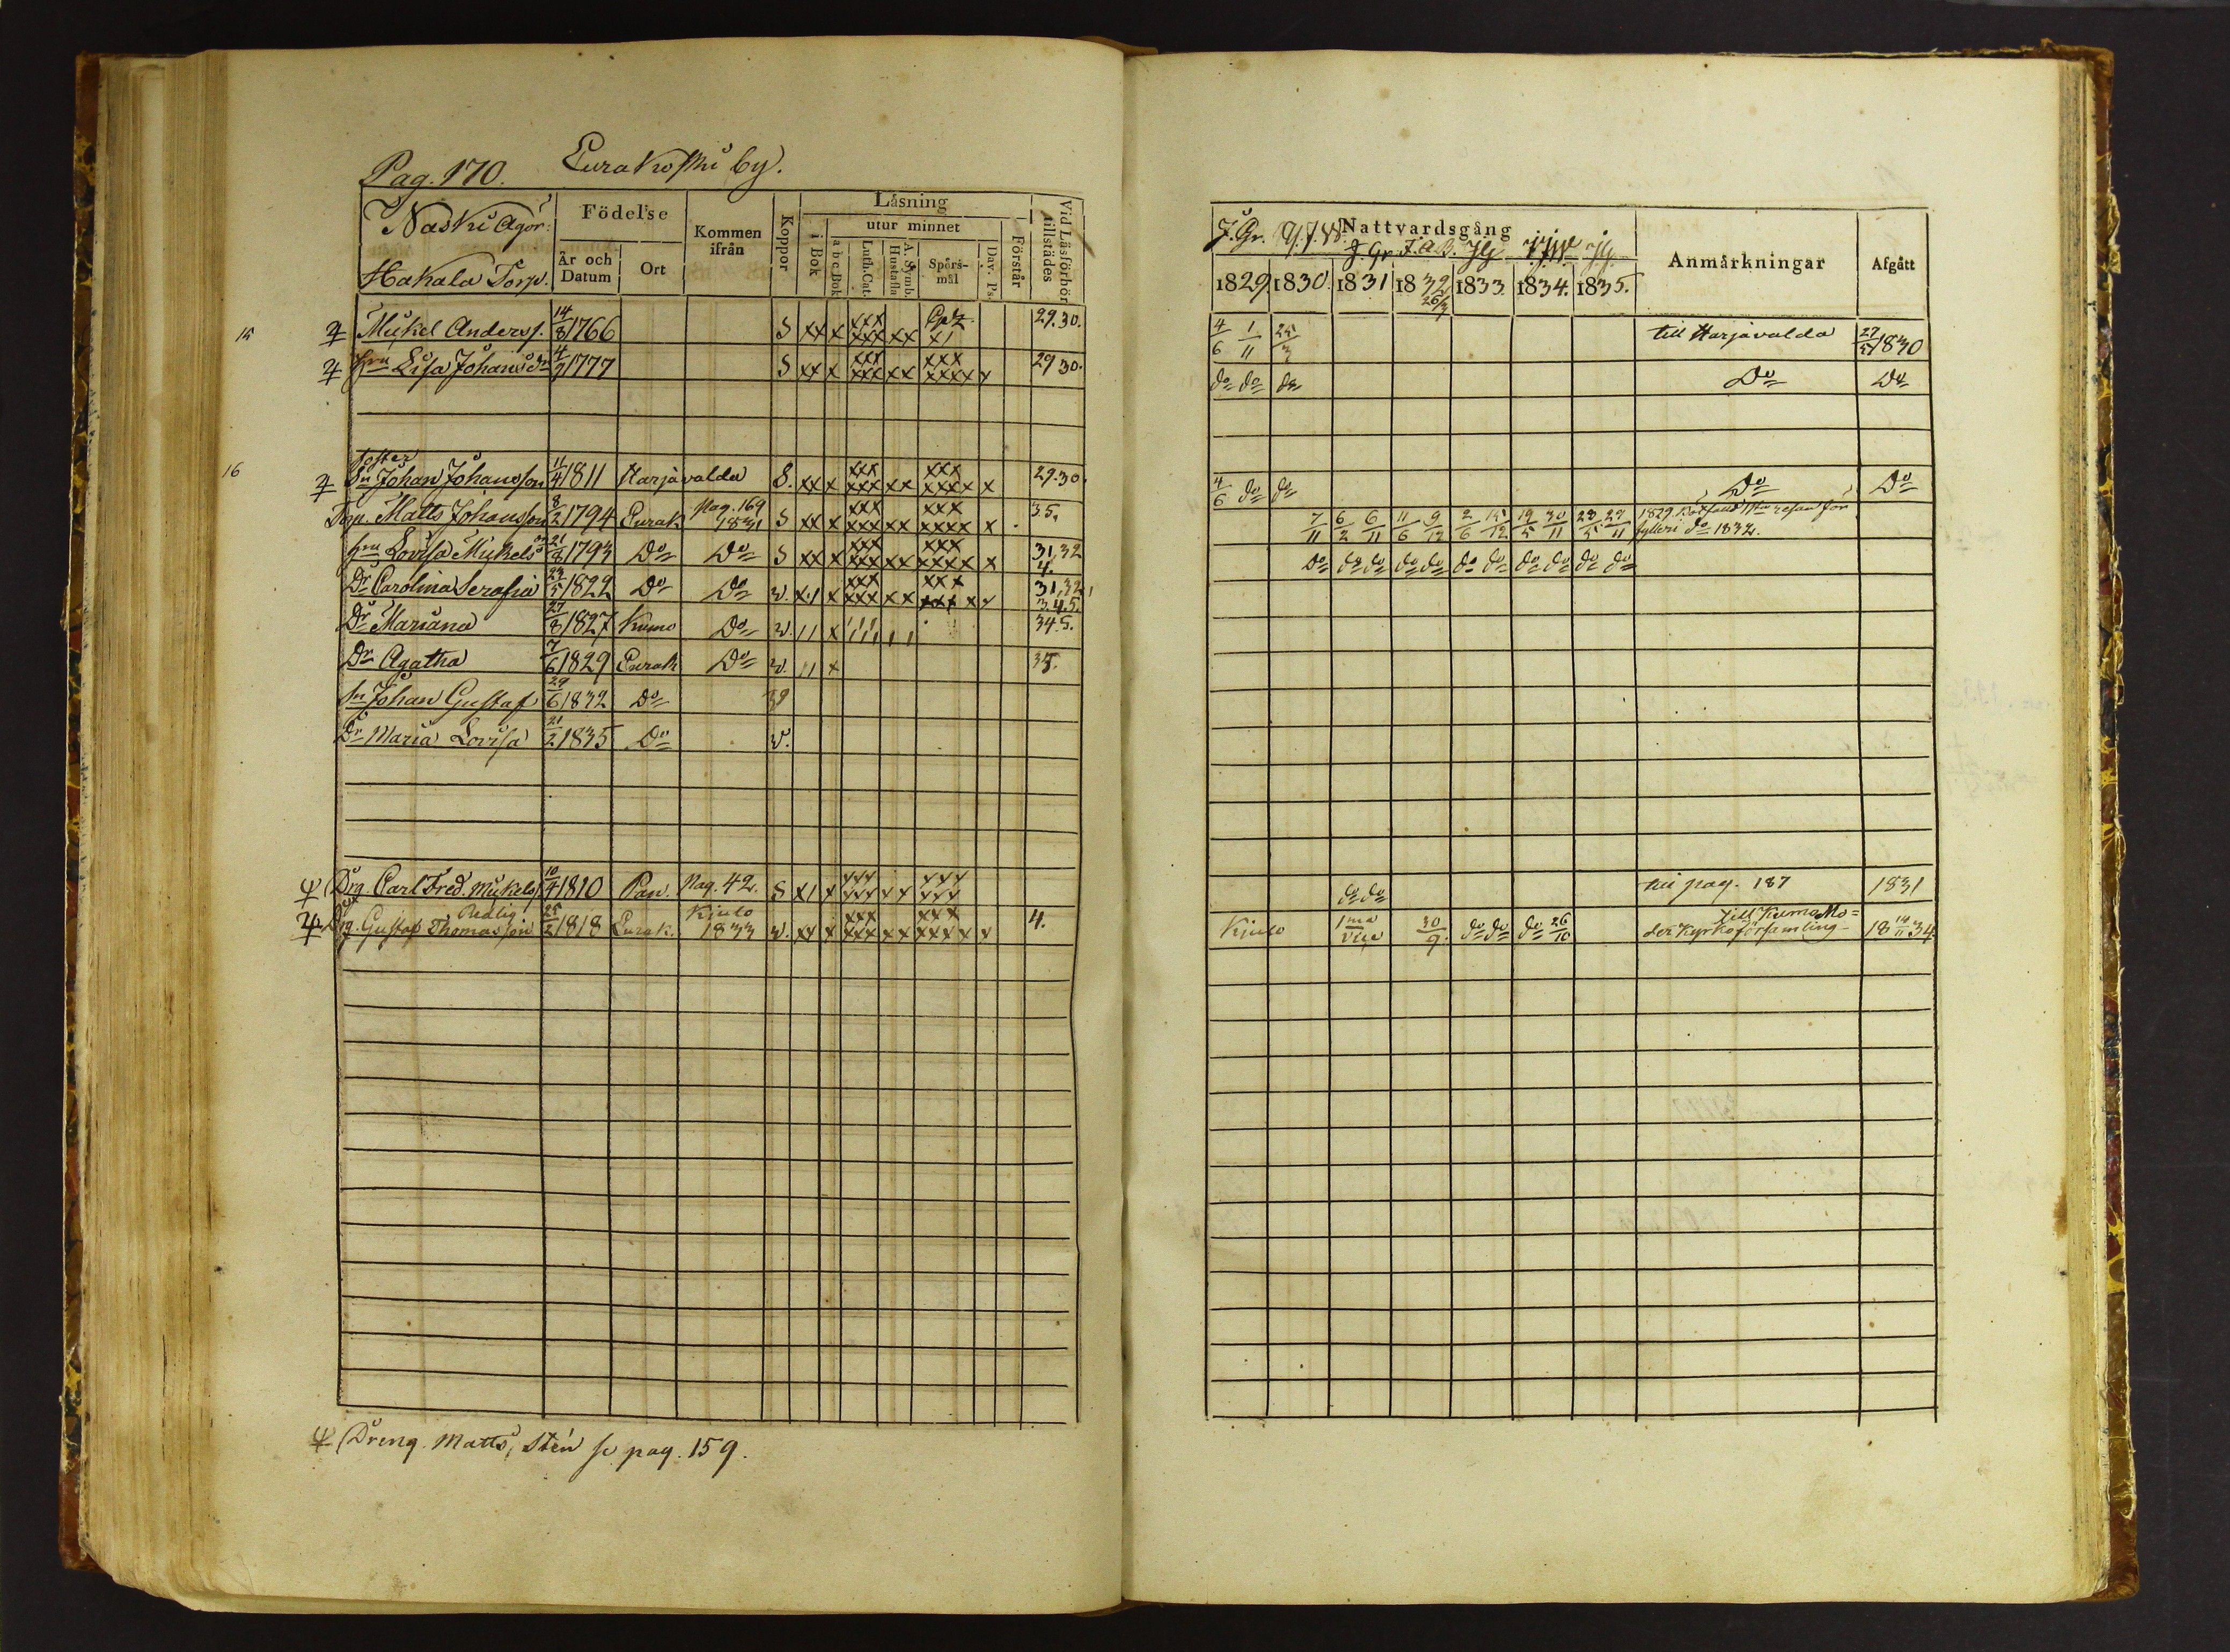 Pag. 170. Eurakoski by.
Naski Ägor:
Hakala Torp.
Födelse
År och Datum
Ort
Kommen ifrån
Koppor
Läsning
i Bok
utur minnet
a b c Bok
Luth. Cat.
A. Symb. Hustafla
Spörs-mål
Dav. Ps.
Förstår
Vid Läsförhör tillstädes
15 Mickel Anderss. 14/8 1766 S xx x xxx xxx xx x1 29.30.
Hru Lisa Johansdr 4/7 1777 S xx x xxx xxx xx xxx xxxx x 29 30.
16 foster
Sn Johan Johansson 11/4 1811 Harjavalda S. xx x xxx xxx xx xxx xxxx x 29.30.
Torp. Matts Johansson 8/2 1794 Eurak Pag. 169 1831 S xx x xxx xxx xx xxx xxxx x 35.
Hru Lovisa Mickelsdr 21/8 1793 Do Do S xx x xxx xxx xx xxx xxxx x 31,32 4.
Dr Carolina Serafia 23/5 1822 Do Do w. x1 x xxx xxx xx xxx xxx x x 31,32, 34.5.
Dr Mariana 27/8 1827 Kumo Do w. 11 x 34.5.
Dr Agatha 7/6 1829 Eurak Do w. 11 x 35.
Sn Johan Gustaf 29/6 1832 Do
Dr Maria Lovisa 21/2 1835 Do w.
Drg. Carl Fred. Mickelss 10/4 1810 Pan. Pag. 42. S x1 x xxx xxx xx xxx xxx
Redlig
Drg. Gustaf Thomasson 25/2 1818 Eurak. Kjulo 1833 w. xx x xxx xxx xx xxx xxxx x 4.
Dreng. Matts Stén se pag. 159.
J. Gr. Nattvardsgång
J. Gr. F.A.B.
1829. 1830. 1831 1832 26/3 1833 1834. 1835.
Anmärkningar
Afgått
4/6 1/11 25/3 till Harjavalda 27/5 1830
do do do Do Do
4/6 do do Do Do
7/11 6/2 6/11 11/6 9/12 2/6 15/12 19/5 30/11 28/5 29/11 1829 resan för
fylleri do 1832.
Do do do do do do do do do do do
do do till pag. 187 1831
Kjulo 1ma vice 30/9. do do do 26/10 till Kumo Mo=
der Kyrkoförsamling 18 14/11 34.